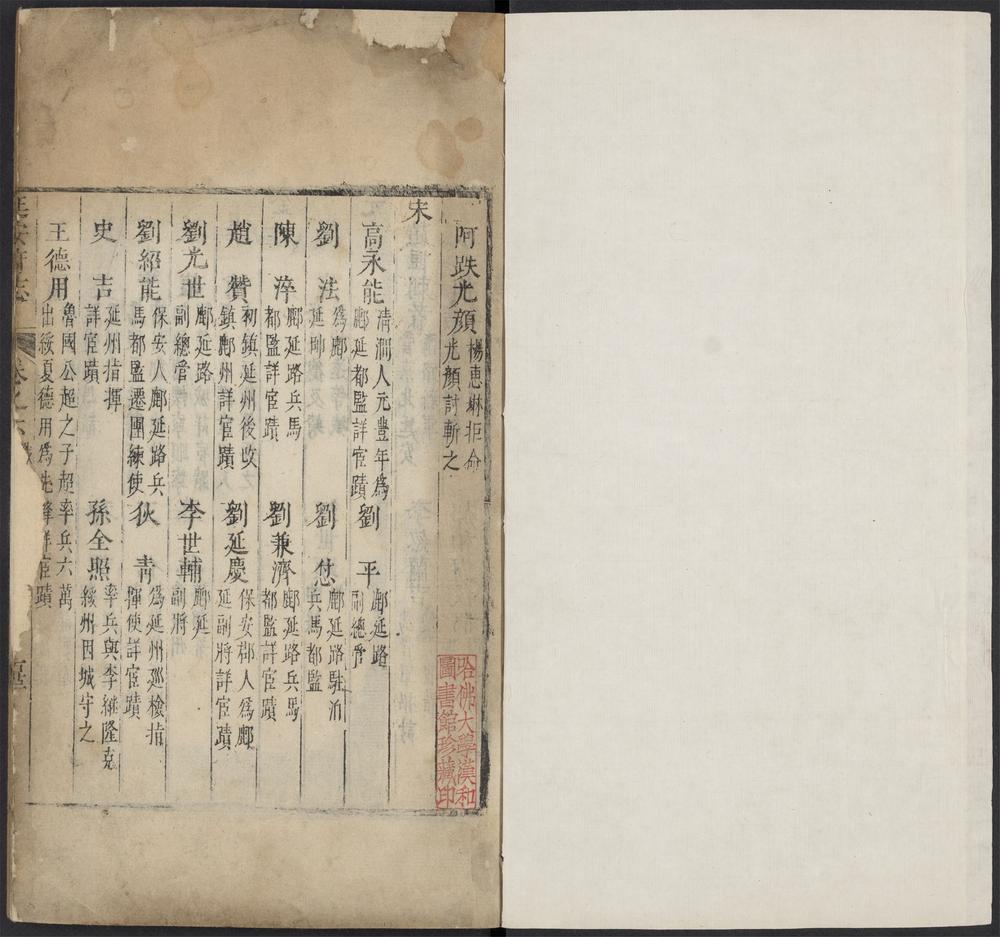 阿跌光顔 楊惠琳拒命光顔討斬之
宋
高永能 清澗人元豐年爲鄜延都監詳宦蹟 劉平 鄜延路副總管
劉法 爲鄜延帥 劉怤 鄜延路駐泊兵馬都監
陳淬 鄜延路兵馬都監詳宦蹟 劉兼濟 鄜延路兵馬都監詳宦蹟
趙贊 初鎮延州後改鎮鄜州詳宦蹟 劉延慶 保安郡人爲鄜延副將詳宦蹟
劉光世 鄜延路副總管 李世輔 鄜延副將
劉紹能 保安人鄜延路兵馬都監遷團練使 狄青 爲延州廵檢指揮使詳宦蹟
史吉 延州指揮詳宦蹟 孫全照 率兵與李繼隆克綏州因城守之
王德用 魯國公超之子超率兵六萬出綏夏德用爲先鋒詳宦蹟
延安府志 卷之六
哈佛大學漢和
圖書館珍藏印